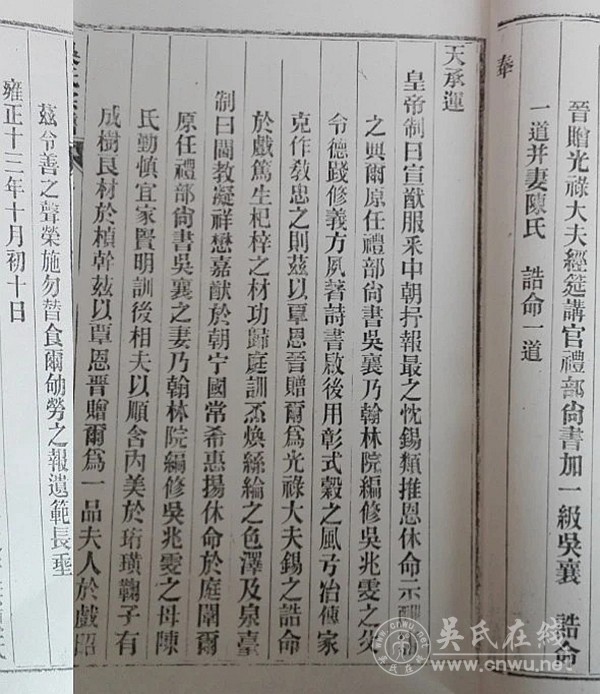 晉贈光祿大夫經筵講官禮部尙書加一級吳襄　誥命
一道并妻陳氏　誥命一道
奉
天承運
皇帝制曰宣猷服寀中朝抒報最之忱錫類推恩休命示
之典爾原任禮部尙書吳襄乃翰林院編修吳兆雯之父
令德踐修義方夙著詩書啟後用彰式穀之風弓冶傳家
克作敎忠之則茲以覃恩晉贈爾爲光祿大夫錫之誥命
於戲篤生杞梓之材功歸庭訓丕煥絲綸之色澤及泉臺
制曰閫敎凝祥懋嘉猷於朝宁國常希惠揚休命於庭闈爾
原任禮部尙書吳襄之妻乃翰林院編修吳兆雯之母陳
氏勤愼宜家賢明訓後相夫以順含內美於珩璜鞠子有
成樹良材於楨幹茲以覃恩晉贈爾爲一品夫人於戲昭
茲令善之聲榮施勿替食爾劬勞之報遺範長垂
雍正十三年十月初十日
吳氏在线
www.cnwu.net